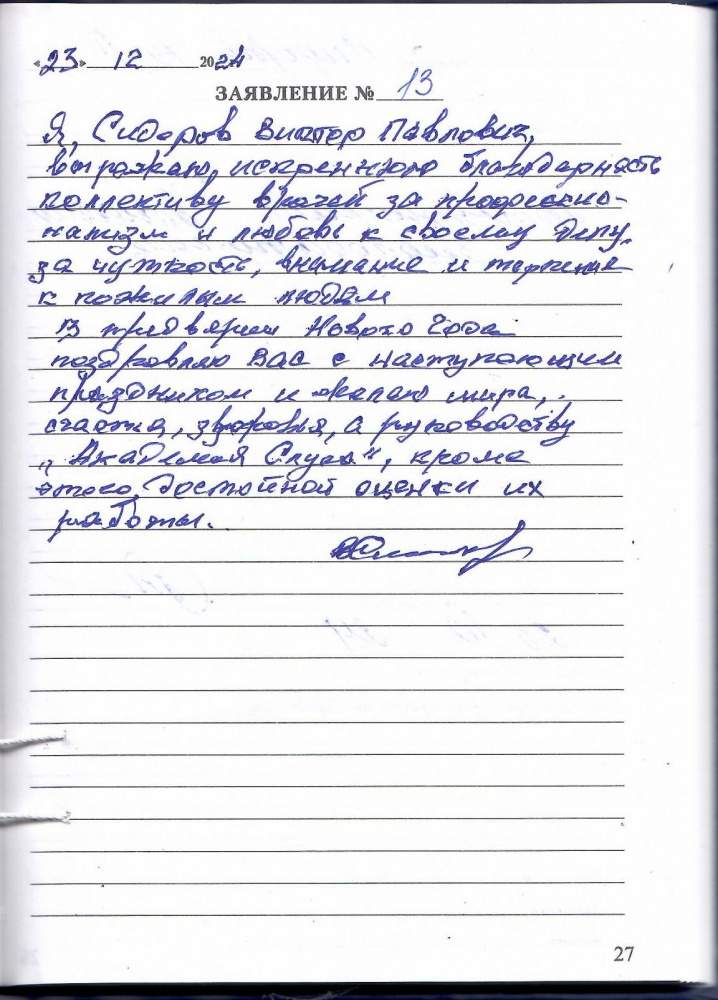 «23» 12 2024
ЗАЯВЛЕНИЕ № 13
Я, Сидоров Виктор Павлович,
выражаю искреннюю благодарность
коллективу врачей за профессио-
нализм и любовь к своему делу,
за чуткость, внимание и терпение
к пожилым людям
В преддверии Нового Года
поздравляю Вас с наступающим
праздником и желаю мира,
счастья, здоровья, а руководству
"Академия Слуха", кроме
этого, достойной оценки их
работы.
27